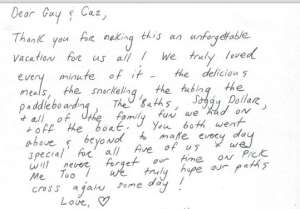 Dear Guy & Caz,
Thank you for making this an unforgettable
vacation for us all! We truly loved
every minute of it - the delicious
meals, the snorkeling, the tubing, the
paddleboarding, The Baths, Soggy Dollar,
& all of the family fun we had on
& off the boat. You both went
above & beyond to make every day
special for all five of us & we
will never forget our time on Pick
Me Too! We truly hope our paths
cross again some day!
Love, ♡